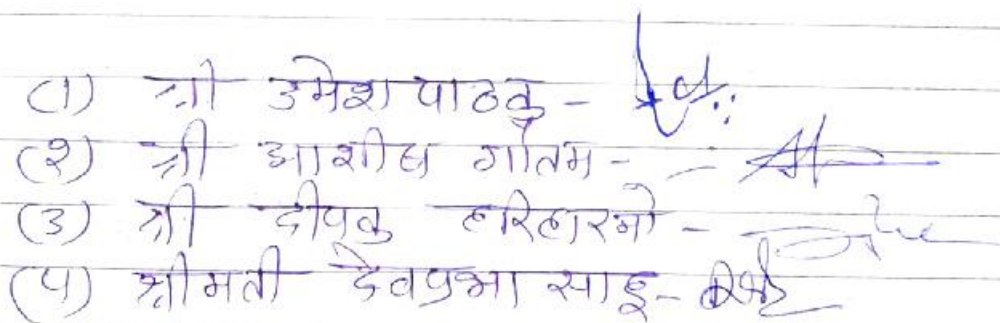 (१) श्री उमेश पाठक -
(२) श्री आशीष गौतम -
(३) श्री दीपक -
(४) श्रीमती देवप्रभा साहू -